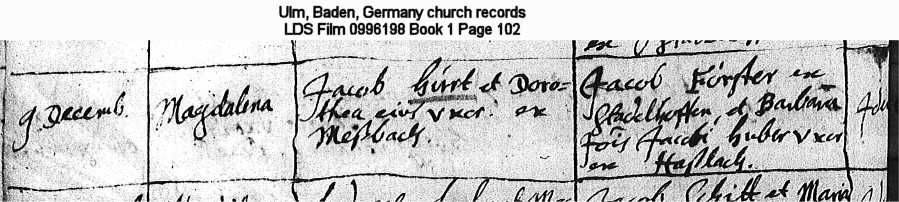 Ulm, Baden, Germany church records
LDS Film 0996198 Book 1 Page 102
9 Decemb.
Magdalena
Jacob Hirrt et Doro=
thea eius uxor ex
Meßbach.
Jacob Förster ex
Stadelhoffen, et Barbara
Jacobi Huber uxor
ex Haßlach.
Jacob Schitt et Maria